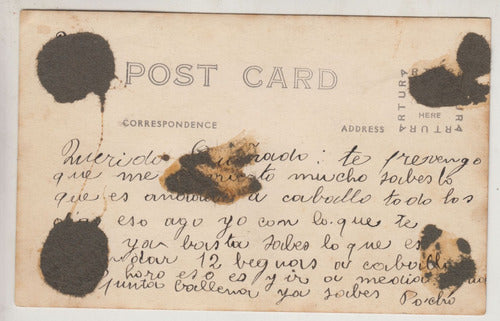 POST CARD
CORRESPONDENCE
ADDRESS
ARTURA
ARTURA
HERE
Querido Cuñado: te prevengo
que me mucho sabes lo
que es a caballo todo los
eso ago yo con lo que te
ya basta sabes lo que es
dar 12 leguas a caballo
eso es y ir a media
Punta Ballena ya sabes